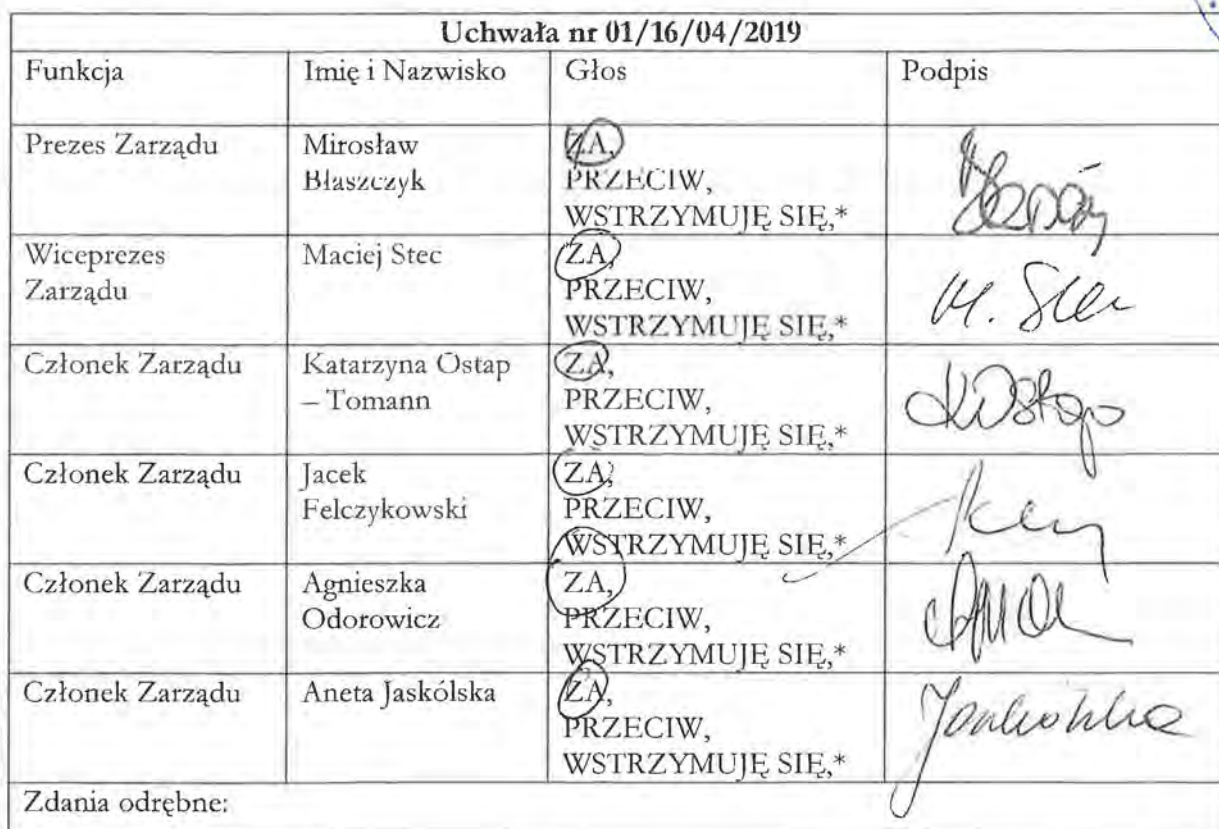 Uchwała nr 01/16/04/2019
Funkcja Imię i Nazwisko Głos Podpis
Prezes Zarządu Mirosław Błaszczyk ZA,
PRZECIW,
WSTRZYMUJĘ SIĘ,*
Wiceprezes Zarządu Maciej Stec ZA,
PRZECIW,
WSTRZYMUJĘ SIĘ,*
M. Stec
Członek Zarządu Katarzyna Ostap – Tomann ZA,
PRZECIW,
WSTRZYMUJĘ SIĘ,*
Członek Zarządu Jacek Felczykowski ZA,
PRZECIW,
WSTRZYMUJĘ SIĘ,*
Członek Zarządu Agnieszka Odorowicz ZA,
PRZECIW,
WSTRZYMUJĘ SIĘ,*
Członek Zarządu Aneta Jaskólska ZA,
PRZECIW,
WSTRZYMUJĘ SIĘ,*
Zdania odrębne: